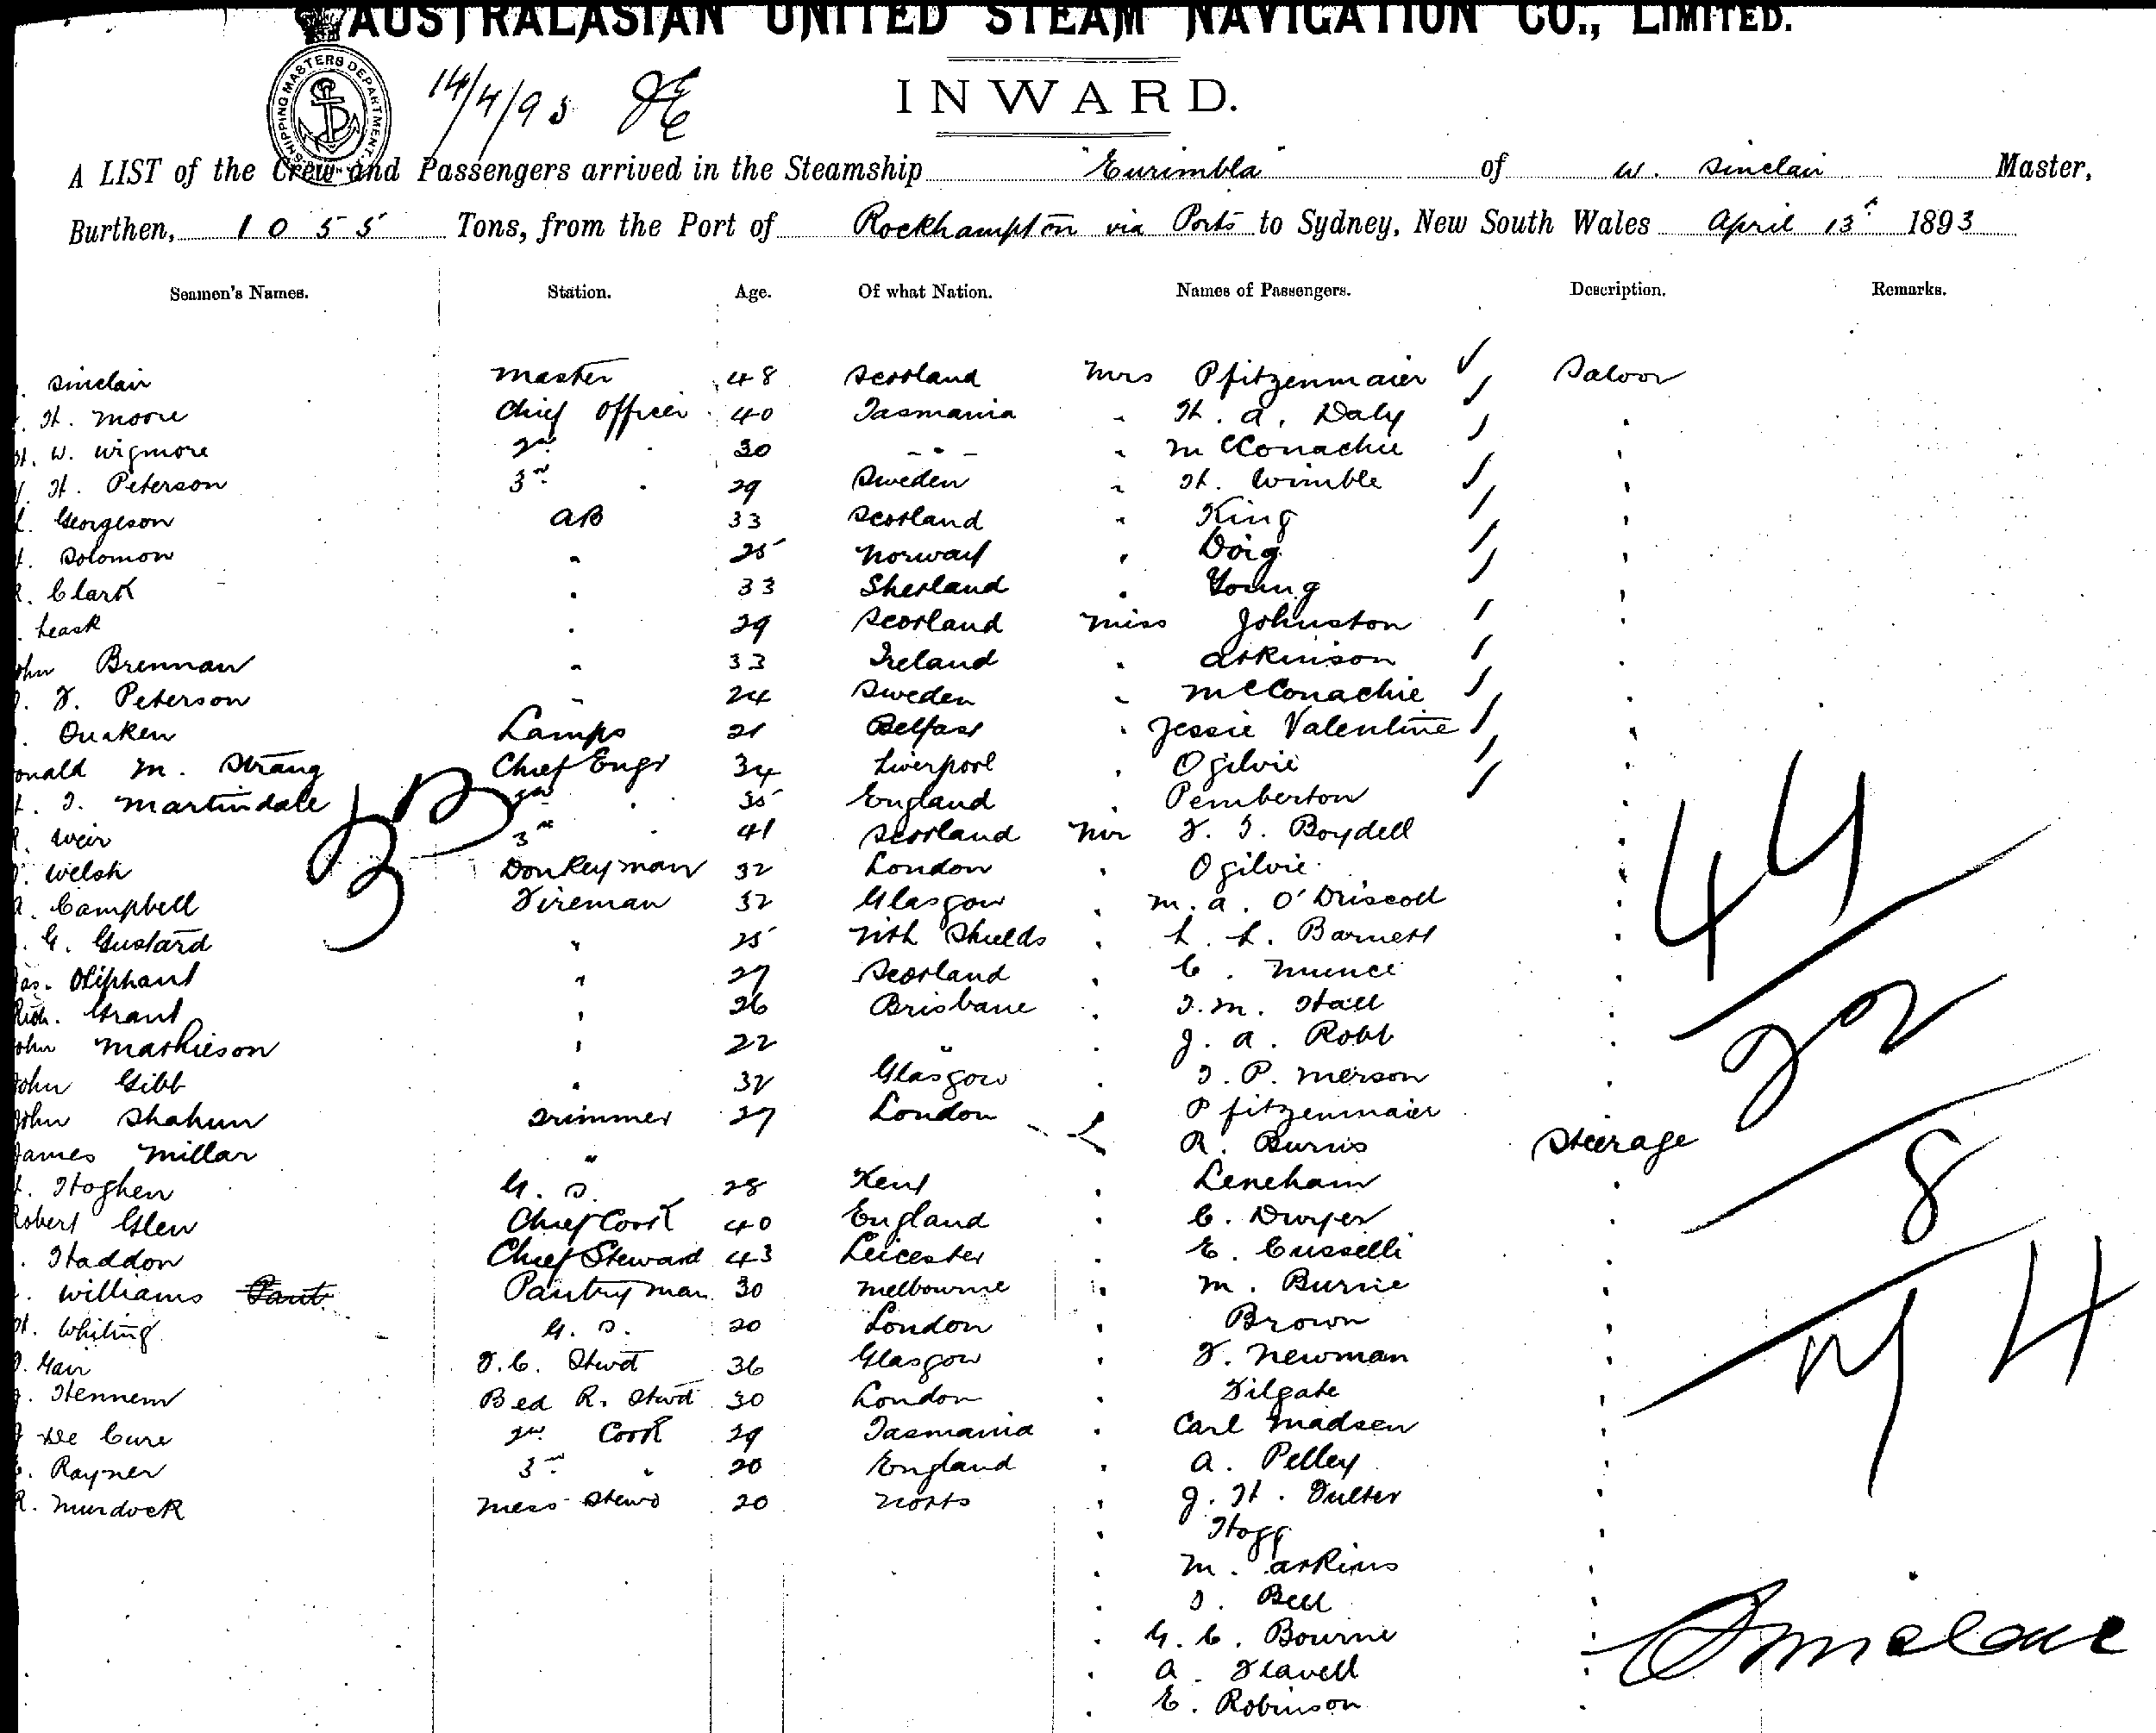 AUSTRALASIAN UNITED STEAM NAVIGATION CO., LIMITED.
SHIPPING MASTERS DEPARTMENT
14/4/93
INWARD.
A LIST of the Crew and Passengers arrived in the Steamship "Eurimbla" of W. Sinclair Master,
Burthen, 1055 Tons, from the Port of Rockhampton via Ports to Sydney, New South Wales April 13th 1893
Seamen's Names. Station. Age. Of what Nation. Names of Passengers. Description. Remarks.
Sinclair Master 48 Scotland Mrs Pfitzenmaier Saloon
H. Moore Chief Officer 40 Tasmania " H. A. Daly "
W. Wigmore 2nd " 30 " McConachie "
H. Peterson 3rd " 29 Sweden " H. Wimble "
Georgeson AB 33 Scotland " King "
Solomon " 25 Norway " Doig "
Clark " 33 Shetland " Young "
Leask " 29 Scotland Miss Johnston "
John Brennan " 33 Ireland " Atkinson "
F. Peterson " 24 Sweden " McConachie "
Quaken Lamps 21 Belfast " Jessie Valentine "
onald M. Strang Chief Engr 34 Liverpool " Ogilvie "
T. Martindale 2nd " 35 England " Pemberton "
Weir 3rd " 41 Scotland Mr F. T. Boydell "
Welsh Donkeyman 32 London " Ogilvie "
Campbell Fireman 32 Glasgow " M. A. O'Driscoll "
G. Gustard " 25 Nth Shields " L. L. Barnett "
Jas. Oliphant " 27 Scotland " C. Munce "
Rich. Grant " 26 Brisbane " T. M. Hall "
John Mathieson " 22 " " J. A. Robb "
John Gibb " 32 Glasgow " T. P. Merson "
John Shahun Trimmer 27 London " Pfitzenmaier "
James Millar " R. Burns Steerage
Hoghen G. S. 28 Kent " Leneham "
Robert Glen Chief Cook 40 England " C. Dwyer "
Haddon Chief Steward 43 Leicester " E. Cusselli "
Williams Pantryman 30 Melbourne " M. Burnie "
H. Whiting G. S. 20 London " Brown "
Gair F.C. Stwd 36 Glasgow " F. Newman "
Hennem Bed R. Stwd 30 London " Filgate "
De Cure 2nd Cook 29 Tasmania " Carl Madsen "
Rayner 3rd " 20 England " A. Pelley "
R. Murdock Mess Stewd 20 Notts " J. H. Fulter "
" Hogg "
" M. Atkins "
" T. Bell "
" G. C. Bourne "
" A. Flavell "
" E. Robinson "
33
44
22
8
74